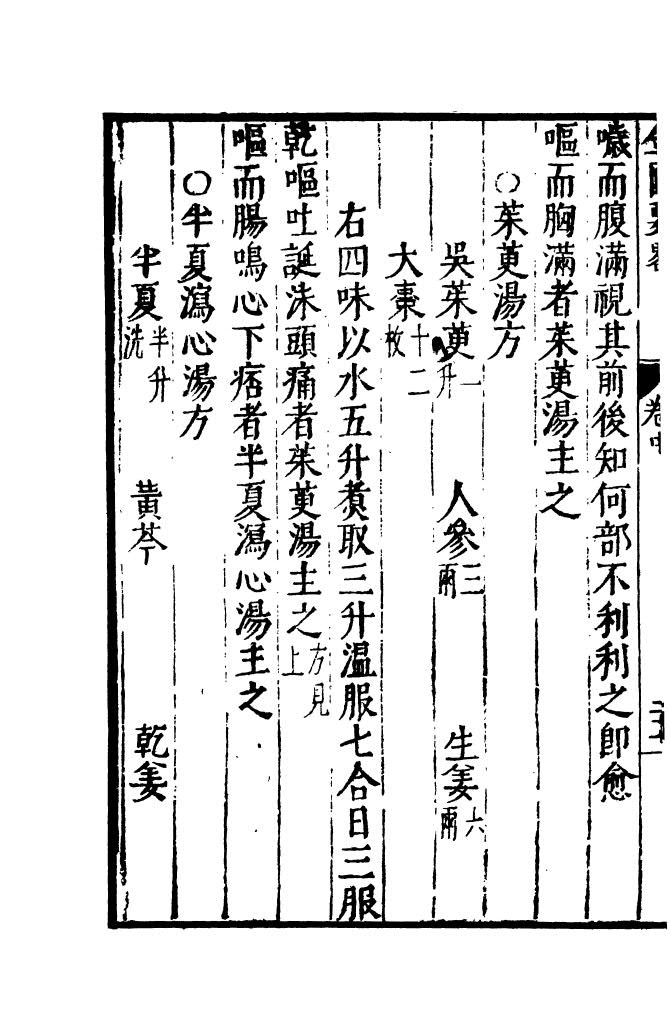 卷中
噦而腹滿視其前後知何部不利利之卽愈
嘔而胸滿者茱萸湯主之
○茱萸湯方
吳茱萸一升 人參三兩 生姜六兩
大棗十二枚
右四味以水五升煑取三升溫服七合日三服
乾嘔吐誕沫頭痛者茱萸湯主之方見上
嘔而腸鳴心下痞者半夏瀉心湯主之
○半夏瀉心湯方
半夏半升洗 黃芩 乾姜